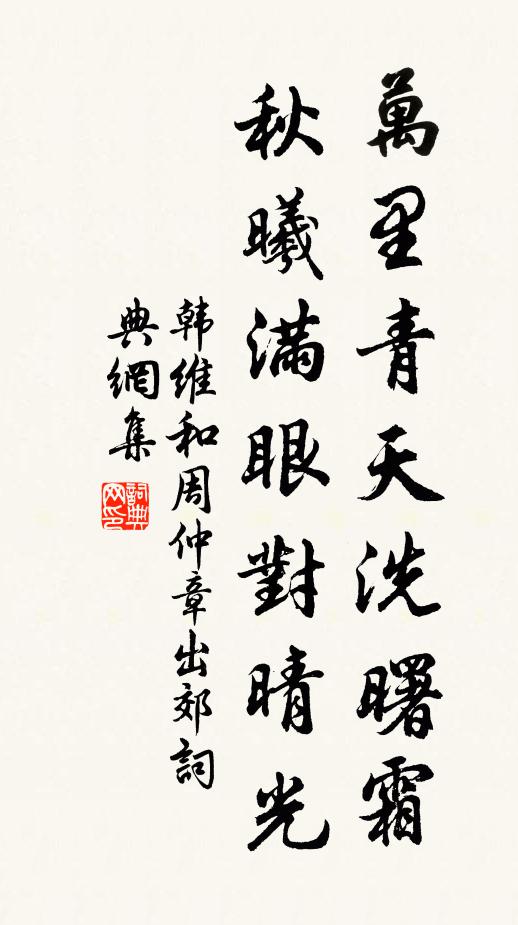 萬里青天洗曙霜
秋曦滿眼對晴光
韩維和周仲章出郊詞
典網集
詞典
网印